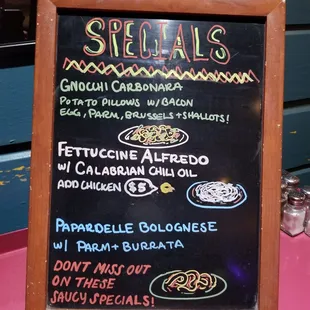 SPECIALS
GNOCCHI CARBONARA
POTATO PILLOWS W/ BACON
EGG, PARM, BRUSSELS + SHALLOTS!
FETTUCCINE ALFREDO
W/ CALABRIAN CHILI OIL
ADD CHICKEN $5
PAPARDELLE BOLOGNESE
W/ PARM + BURRATA
DONT MISS OUT
ON THESE
SAUCY SPECIALS!